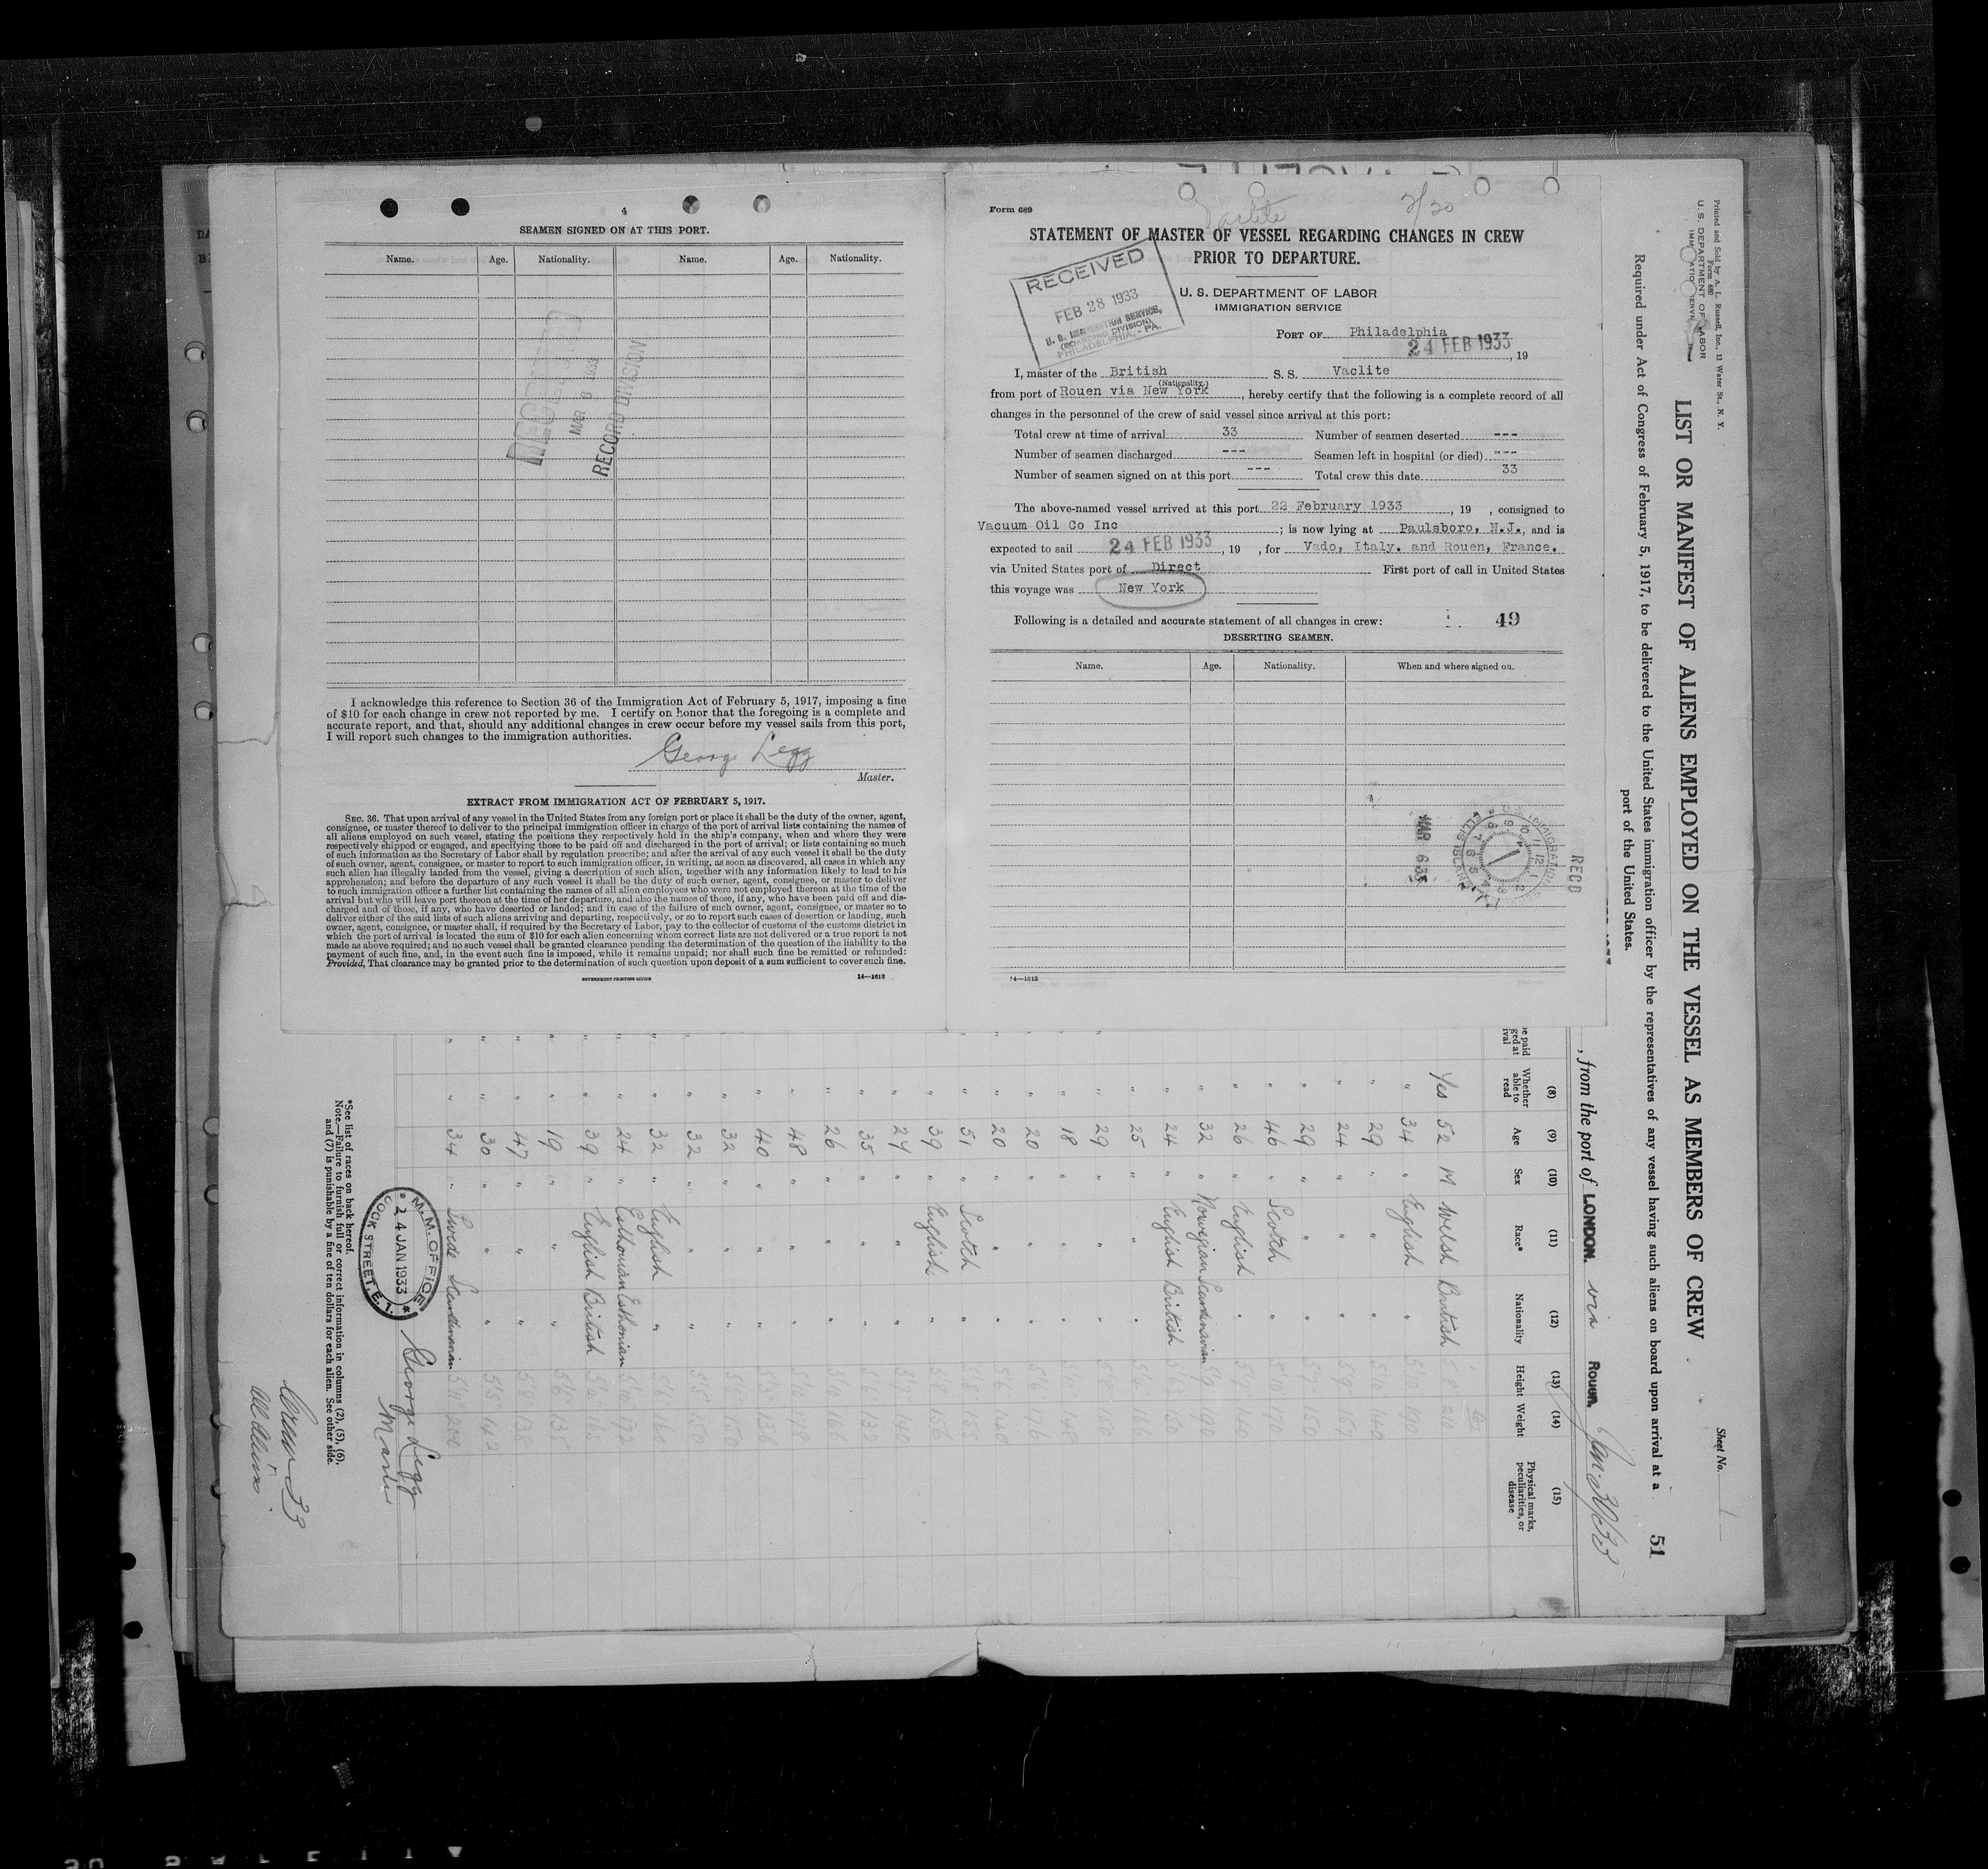 4
SEAMEN SIGNED ON AT THIS PORT.
Name. Age. Nationality. Name. Age. Nationality.
MAR 8 1933
RECORD DIVISION
I acknowledge this reference to Section 36 of the Immigration Act of February 5, 1917, imposing a fine
of $10 for each change in crew not reported by me. I certify on honor that the foregoing is a complete and
accurate report, and that, should any additional changes in crew occur before my vessel sails from this port,
I will report such changes to the immigration authorities.
George Legg
Master.
EXTRACT FROM IMMIGRATION ACT OF FEBRUARY 5, 1917.
SEC. 36. That upon arrival of any vessel in the United States from any foreign port or place it shall be the duty of the owner, agent,
consignee, or master thereof to deliver to the principal immigration officer in charge of the port of arrival lists containing the names of
all aliens employed on such vessel, stating the positions they respectively hold in the ship's company, when and where they were
respectively shipped or engaged, and specifying those to be paid off and discharged in the port of arrival; or lists containing so much
of such information as the Secretary of Labor shall by regulation prescribe; and after the arrival of any such vessel it shall be the duty
of such owner, agent, consignee, or master to report to such immigration officer, in writing, as soon as discovered, all cases in which any
such alien has illegally landed from the vessel, giving a description of such alien, together with any information likely to lead to his
apprehension; and before the departure of any such vessel it shall be the duty of such owner, agent, consignee, or master to deliver
to such immigration officer a further list containing the names of all alien employees who were not employed thereon at the time of the
arrival but who will leave port thereon at the time of her departure, and also the names of those, if any, who have been paid off and dis-
charged and of those, if any, who have deserted or landed; and in case of the failure of such owner, agent, consignee, or master so to
deliver either of the said lists of such aliens arriving and departing, respectively, or so to report such cases of desertion or landing, such
owner, agent, consignee, or master shall, if required by the Secretary of Labor, pay to the collector of customs of the customs district in
which the port of arrival is located the sum of $10 for each alien concerning whom correct lists are not delivered or a true report is not
made as above required; and no such vessel shall be granted clearance pending the determination of the question of the liability to the
payment of such fine, and, in the event such fine is imposed, while it remains unpaid; nor shall such fine be remitted or refunded:
Provided, That clearance may be granted prior to the determination of such question upon deposit of a sum sufficient to cover such fine.
GOVERNMENT PRINTING OFFICE 14—1613
Form 689
Vaclite 2/20
STATEMENT OF MASTER OF VESSEL REGARDING CHANGES IN CREW
PRIOR TO DEPARTURE.
RECEIVED
FEB 28 1933
U. S. IMMIGRATION SERVICE,
(BOARDING DIVISION)
PHILADELPHIA, - PA.
U. S. DEPARTMENT OF LABOR
IMMIGRATION SERVICE
PORT OF Philadelphia
24 FEB 1933, 19
I, master of the British S. S. Vaclite
(Nationality.)
from port of Rouen via New York, hereby certify that the following is a complete record of all
changes in the personnel of the crew of said vessel since arrival at this port:
Total crew at time of arrival 33 Number of seamen deserted ---
Number of seamen discharged --- Seamen left in hospital (or died) ---
Number of seamen signed on at this port --- Total crew this date 33
The above-named vessel arrived at this port 22 February 1933, 19 , consigned to
Vacuum Oil Co Inc ; is now lying at Paulsboro, N.J., and is
expected to sail 24 FEB 1933, 19 , for Vado, Italy. and Rouen, France.
via United States port of Direct First port of call in United States
this voyage was New York
Following is a detailed and accurate statement of all changes in crew: 49
DESERTING SEAMEN.
Name. Age. Nationality. When and where signed on.
MAR 6 33
IMMIGRATION
ELLIS ISLAND
RECD
14—1613
Printed and Sold by A. L. Russell, Inc., 11 Water St., N. Y.
Form 680
U. S. DEPARTMENT OF LABOR
Sheet No. 1
LIST OR MANIFEST OF ALIENS EMPLOYED ON THE VESSEL AS MEMBERS OF CREW
Required under Act of Congress of February 5, 1917, to be delivered to the United States immigration officer by the representatives of any vessel having such aliens on board upon arrival at a 51
port of the United States.
, from the port of LONDON. via Rouen. Jan. 30/33
(8) (9) (10) (11) (12) (13) (14) (15)
Whether able to read Age Sex Race* Nationality Height Weight Physical marks, peculiarities, or disease
Yes 52 M Welsh British 5'8 210
" 34 " English " 5'10 190
" 29 " " " 5'10 140
" 24 " " " 5'9
" 29 " " " 150
" 46 " Scotch " 170
" 26 " English "
" 32 " Norwegian Scandinavian 5'9 190
" 24 " English British 150
" 25 " " " 166
" 29 " " "
" 18 " " " 148
" 20 " " "
" 20 " " " 5'6 140
" 51 " Scotch " 5'8 155
" 39 " English " 5'8 156
" 27 " " " 140
" 35 " " "
" 26 " " " 166
" 48 " " " 178
" 40 " " "
" 32 " " " 150
" 32 " " " 5'5
" 32 " English " 5'6 160
" 24 " Esthonian Esthonian 5'10 172
" 39 " English British 165
" 19 " " " 5'6 135
" 47 " " " 138
" 30 " " " 5'5 142
" 34 " Swede Scandinavian 5'11 200
George Legg
Master
M. M. OFFICE
* 24 JAN 1933 *
DOCK STREET, E.1.
*See list of races on back hereof.
Note—Failure to furnish full or correct information in columns (2), (5), (6),
and (7) is punishable by a fine of ten dollars for each alien. See other side.
Crew 33